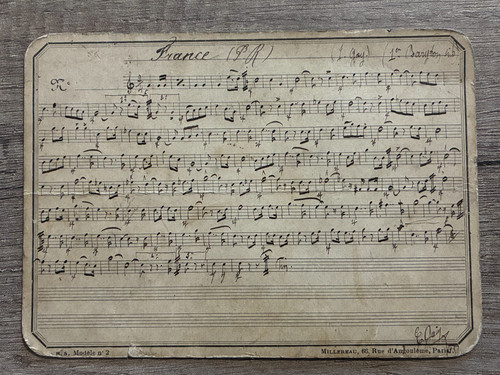 France (P R) (J. Gay) 1er Baryton sib
N°
1e 2e
M. A. Modèle n° 2 MILLEREAU, 66, Rue d'Angoulême, Paris